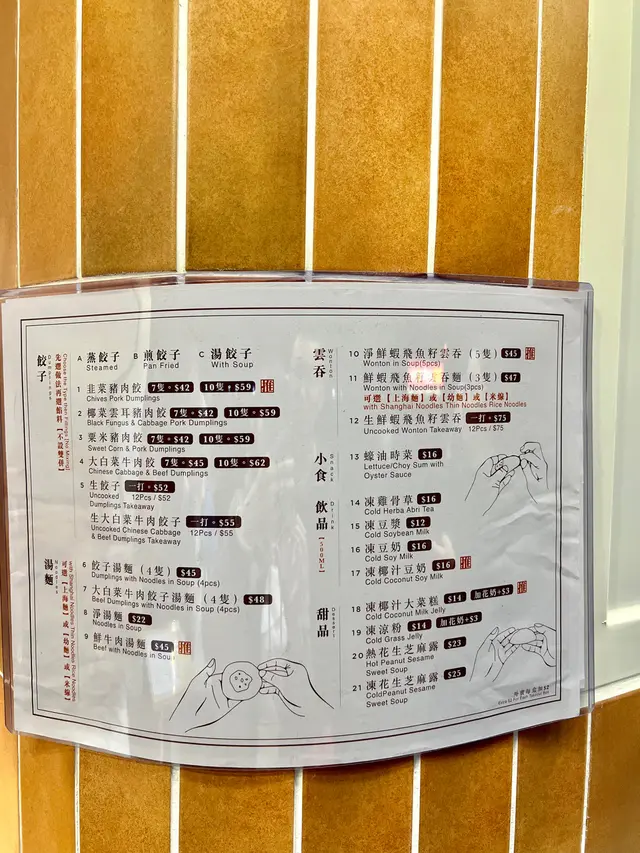 餃子
Dumplings
先選做法再選餡料【不設雙併】
A 蒸餃子 B 煎餃子 C 湯餃子
Steamed Pan Fried With Soup
1 韭菜豬肉餃 7隻•$42 10隻•$59 推
Chives Pork Dumplings
2 椰菜雲耳豬肉餃 7隻•$42 10隻•$59
Black Fungus & Cabbage Pork Dumplings
3 粟米豬肉餃 7隻•$42 10隻•$59
Sweet Corn & Pork Dumplings
4 大白菜牛肉餃 7隻•$45 10隻•$62
Chinese Cabbage & Beef Dumplings
5 生餃子 一打•$52
Uncooked 12Pcs / $52
Dumplings Takeaway
生大白菜牛肉餃子 一打•$55
Uncooked Chinese Cabbage 12Pcs / $55
& Beef Dumplings Takeaway
湯麵
Noodles
可選【上海麵】或【幼麵】或【米線】
with Shanghai Noodles Thin Noodles Rice Noodles
6 餃子湯麵（4隻） $45
Dumplings with Noodles in Soup (4pcs)
7 大白菜牛肉餃子湯麵（4隻） $48
Beef Dumplings with Noodles in Soup (4pcs)
8 淨湯麵 $22
Noodles in Soup
9 鮮牛肉湯麵 $45 推
Beef with Noodles in Soup
雲吞
Wonton
10 淨鮮蝦飛魚籽雲吞（5隻） $45 推
Wonton in Soup(5pcs)
11 鮮蝦飛魚籽雲吞麵（3隻） $47
Wonton with Noodles in Soup(3pcs)
可選【上海麵】或【幼麵】或【米線】
with Shanghai Noodles Thin Noodles Rice Noodles
12 生鮮蝦飛魚籽雲吞 一打•$75
Uncooked Wonton Takeaway 12Pcs / $75
小食
Snack
13 蠔油時菜 $16
Lettuce/Choy Sum with
Oyster Sauce
飲品
Drink
【500ML】
14 凍雞骨草 $16
Cold Herba Abri Tea
15 凍豆漿 $12
Cold Soybean Milk
16 凍豆奶 $16
Cold Soy Milk
17 凍椰汁豆奶 $16 推
Cold Coconut Soy Milk
甜品
Dessert
18 凍椰汁大菜糕 $14 加花奶+$3 推
Cold Coconut Milk Jelly
19 凍涼粉 $14 加花奶+$3
Cold Grass Jelly
20 熱花生芝麻露 $23
Hot Peanut Sesame
Sweet Soup
21 凍花生芝麻露 $25
ColdPeanut Sesame
Sweet Soup